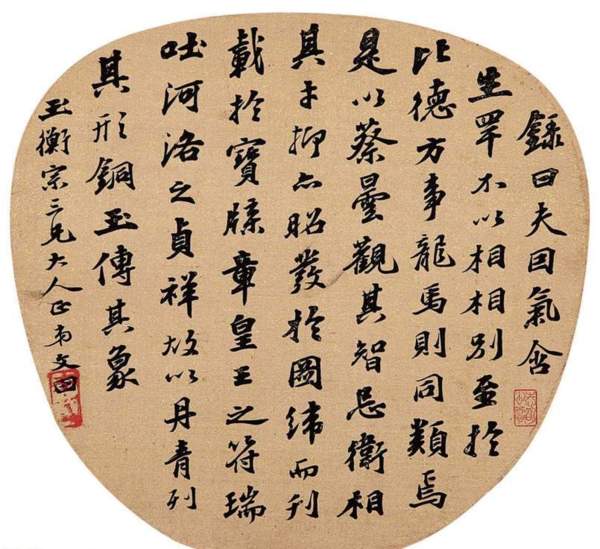 錄曰夫因氣含
生罕不以相相別至於
比德方事龍馬則同類焉
是以蔡曇觀其智忌衛相
其才抑亦昭發於圖緯而刊
載於寶牒章皇王之符瑞
吐河洛之貞祥故以丹青列
其形銅玉傳其象
玉衡宗三兄大人正弟文田